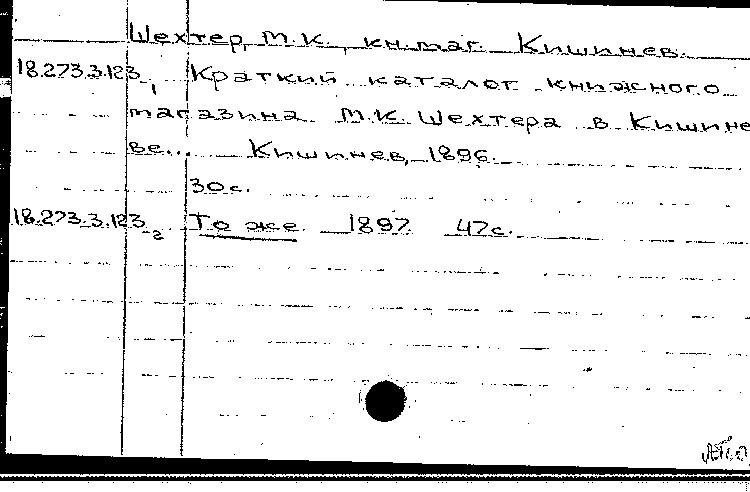 Шехтер, М.К., кн.маг. Кишинев.
18.273.3.123₁ Краткий каталог книжного
магазина М.К. Шехтера в Кишине
ве... Кишинев, 1896.
30с.
18.273.3.123₂ То же. 1897. 47с.